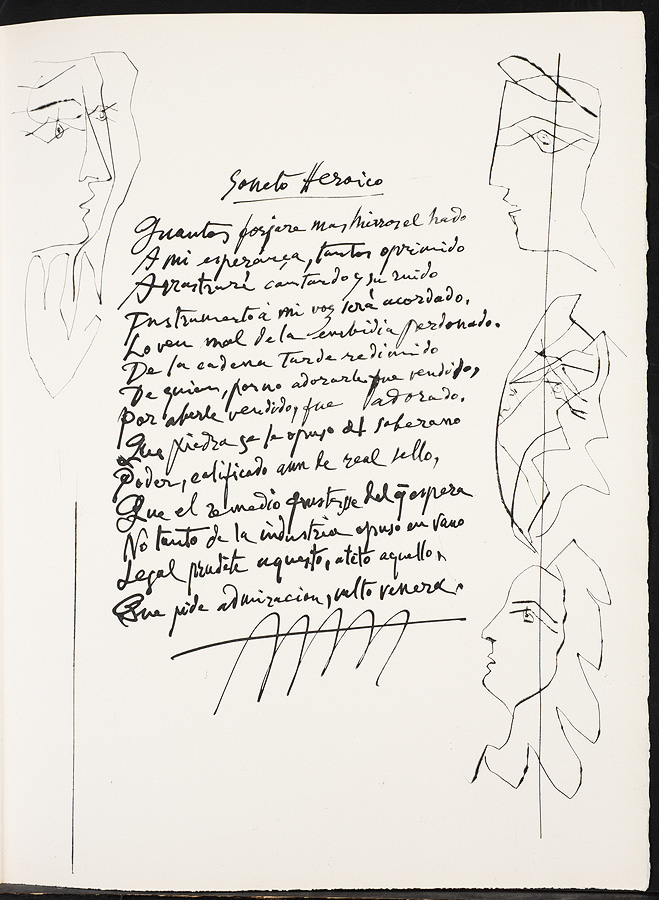 Soneto Heroico
Quantos forjare mas hierros el hado
A mi esperança, tantos oprimido
Arrastraré cantando y su ruido
Instrumento à mi voz será acordado.
Loven mal de la embidia perdonado.
De la cadena tarde redimido
De quien, por no adorarle fue vendido,
Por aberle vendido, fue adorado.
Que piedra se le opuso al soberano
Poder, calificado aun de real sello,
Que el remedio frustasse del q̄ espera
No tanto de la industria opuso en vano
Legal prudete aquesto, ateto aquello,
Que pide admiracion, culto venera.